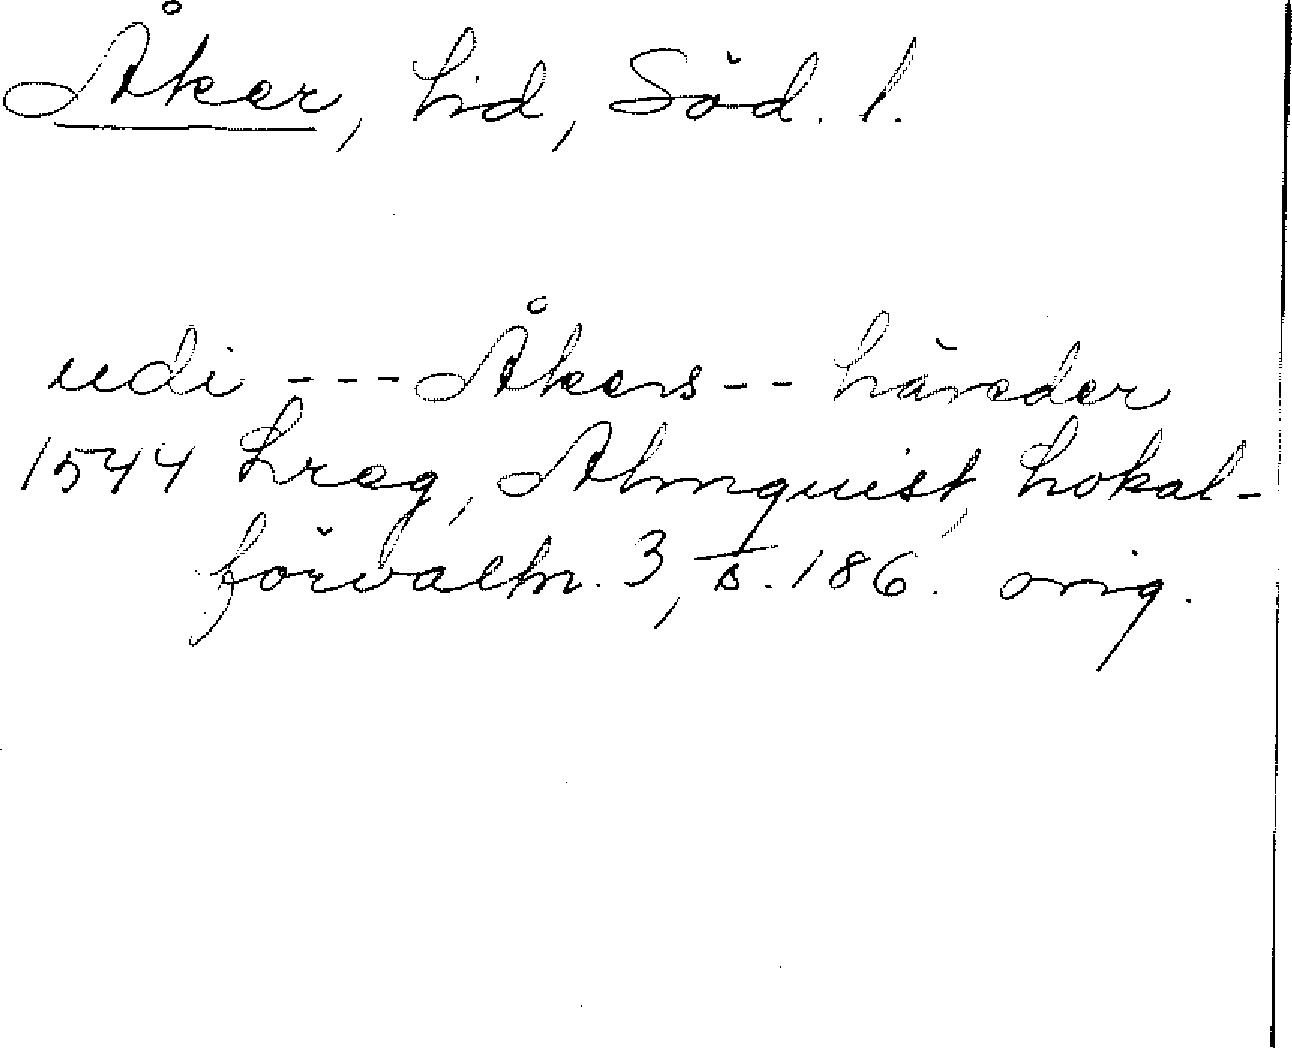 Åker, hd, Söd. l.
udi --- Åkers -- häreder
1544 Lreg, Almquist, Lokal-
förvaltn. 3, s. 186. orig.